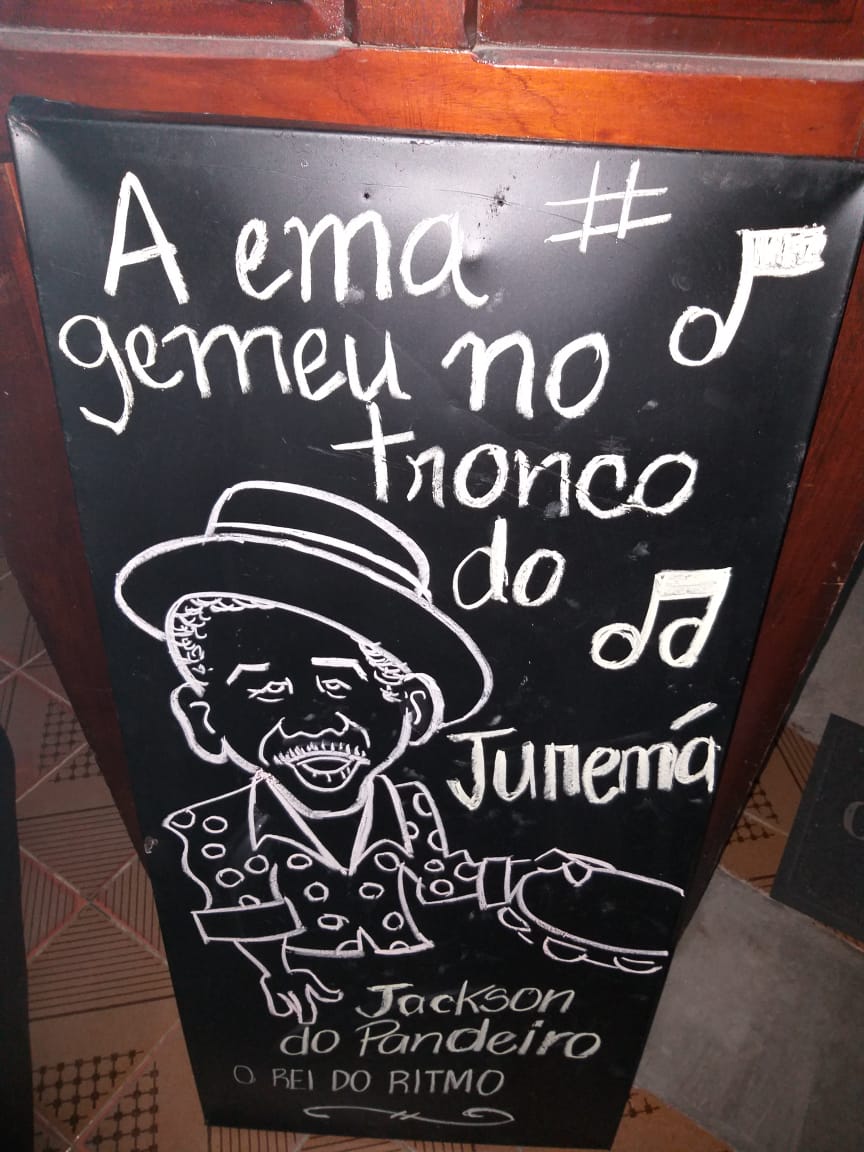 A ema #
gemeu no
tronco
do
Juremá
Jackson
do Pandeiro
O REI DO RITMO